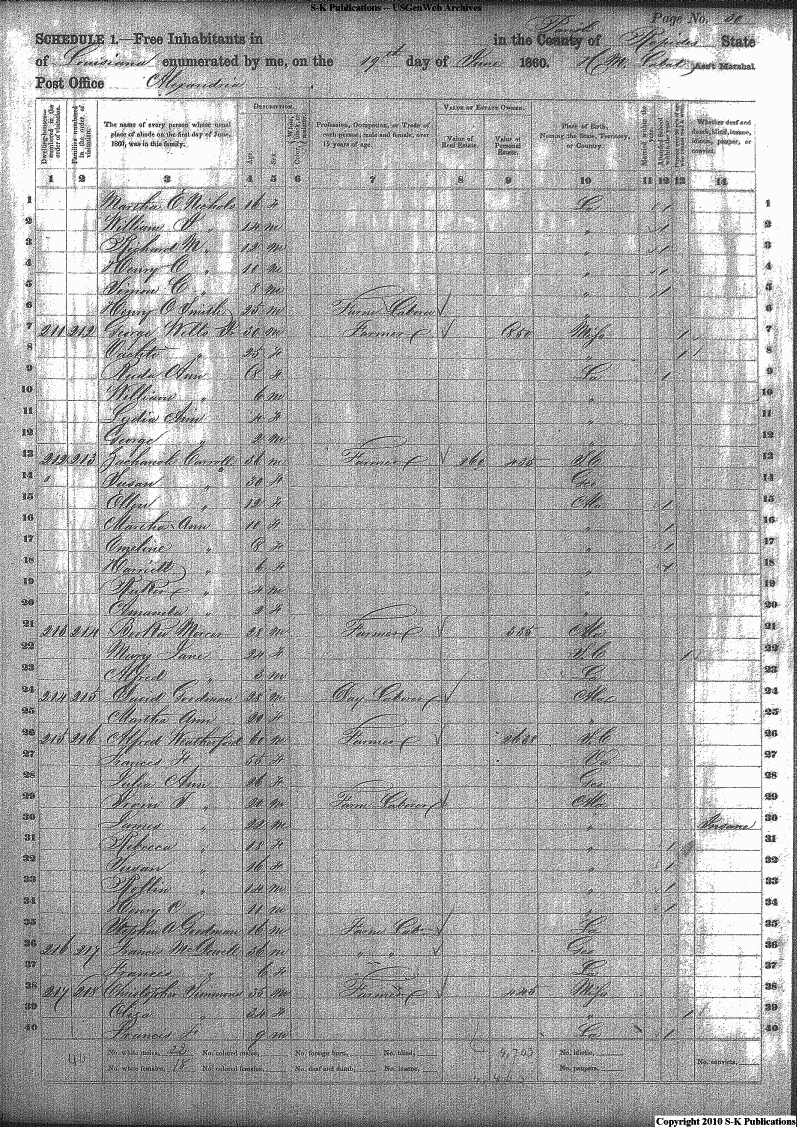 S-K Publications -- USGenWeb Archives
Page No. 30
SCHEDULE 1.—Free Inhabitants in in the County of Rapides State
Parish
of Louisiana enumerated by me, on the 19th day of June 1860. Ass't Marshal.
Post Office Alexandria
Dwelling-houses—numbered in the order of visitation.
Families numbered in the order of visitation.
The name of every person whose usual place of abode on the first day of June, 1860, was in this family.
DESCRIPTION.
Age.
Sex.
Profession, Occupation, or Trade of each person, male and female, over 15 years of age.
VALUE OF ESTATE OWNED.
Value of Real Estate.
Value of Personal Estate.
Place of Birth, Naming the State, Territory, or Country.
Married within the year.
Attended School within the year.
Whether deaf and dumb, blind, insane, idiotic, pauper, or convict.
1 2 3 4 5 6 7 8 9 10 11 12 13 14
1 Martha E Nichols 16 f La / 1
2 William „ 14 m „ / 2
3 Richard M „ 12 m „ / 3
4 Henry C „ 10 m „ / 4
5 Simon C „ 8 m „ / 5
6 Henry O Smith 25 m Farm Laborer „ 6
7 211 212 George Wells 30 m Farmer 650 Miss / 7
8 „ 25 f „ / 8
9 Ann „ 8 f La / 9
10 William „ 6 m „ 10
11 Lydia Ann 4 f „ 11
12 George „ 2 m „ 12
13 212 213 Zachariah Carroll 36 m Farmer 435 S C 13
14 Susan „ 30 f Geo 14
15 Ellen „ 12 f Ala / 15
16 Martha Ann 10 f „ / 16
17 Emeline „ 8 f „ / 17
18 Harriett „ 6 f „ / 18
19 „ 4 m „ 19
20 Amanda „ 2 f „ 20
21 213 214 Mercer 28 m Farmer 535 Ala 21
22 Mary Jane „ 24 f S C / 22
23 Alfred „ 3 m La 23
24 214 215 David Goodman 28 m Day Laborer Ala 24
25 Martha Ann 20 f „ 25
26 215 216 Alfred Weatherford 60 m Farmer S C 26
27 Frances 55 f 27
28 Julia Ann 26 f Geo 28
29 „ 20 m Farm Laborer Ala 29
30 James „ 22 m „ Insane 30
31 Rebecca „ 18 f „ / 31
32 Susan „ 16 f „ / 32
33 Rollin „ 14 m „ / 33
34 Henry C „ 11 m „ / 34
35 Stephen A Goodman 16 m Farm Lab La 35
36 216 217 Francis McDowell 36 m „ „ Geo 36
37 Frances „ 6 f La 37
38 217 218 Christopher Simmons 35 m Farmer 445 Miss 38
39 Eliza „ 34 f „ / 39
40 Francis 9 m La / 40
40
No. white males, 22 No. colored males, No. foreign born, No. blind, No. idiotic,
No. white females, 18 No. colored females, No. deaf and dumb, No. insane, No. paupers, No. convicts,
Copyright 2010 S-K Publications